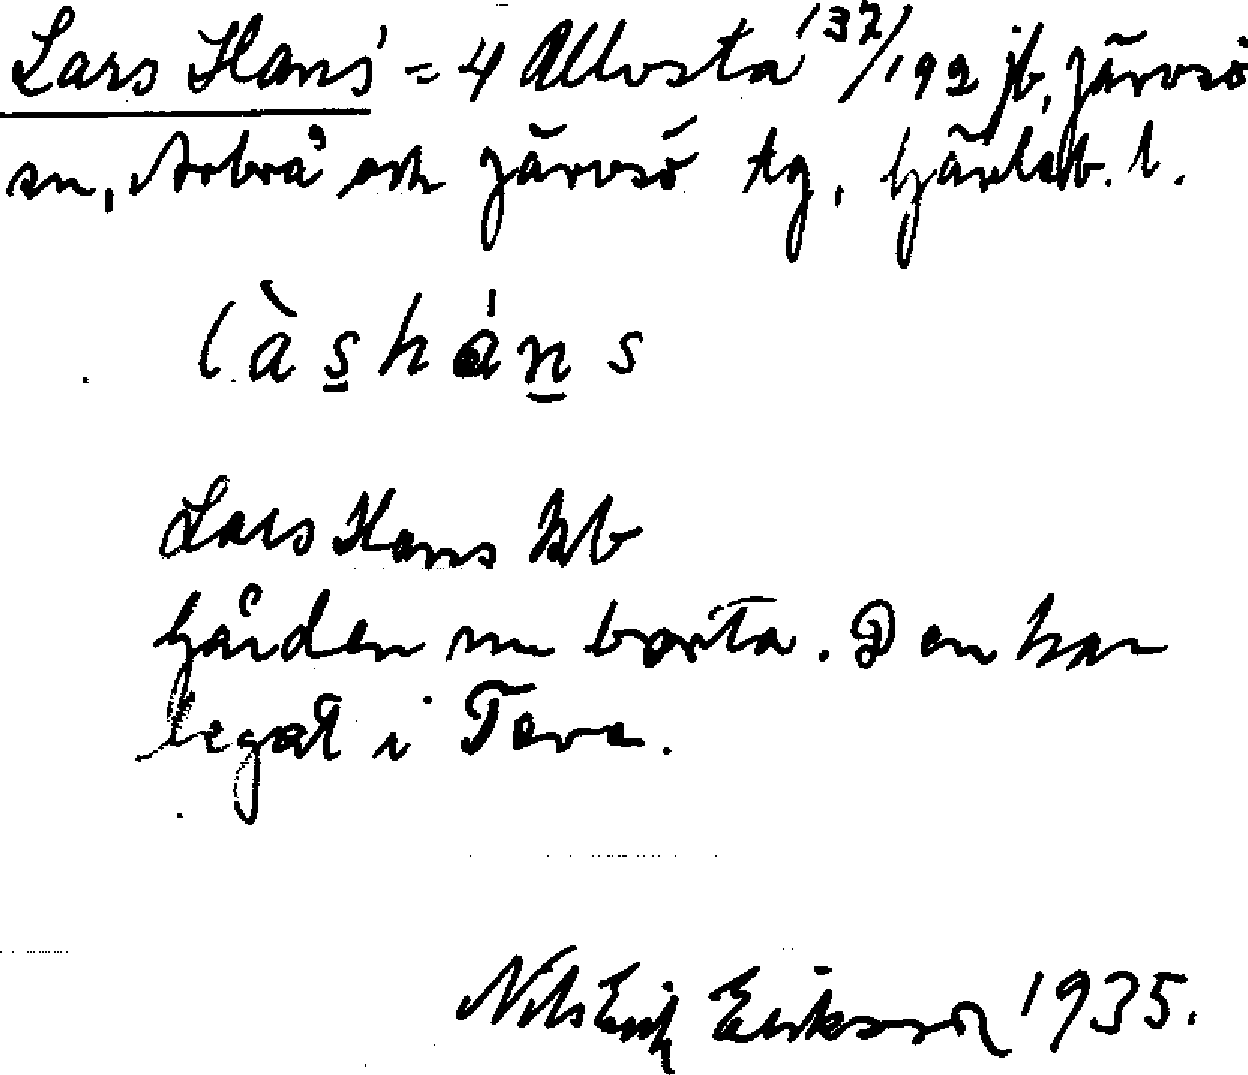 Lars Hans' = 4 Ållosta 132/192 jb, Järvsö
sn, Arbrå och Järvsö tg, Gävleb. l.
làs̱hán̠s
Lars Hans kb
Gården nu borta. Den har
legat i Tava.
Nils Erik Eriksson 1935.